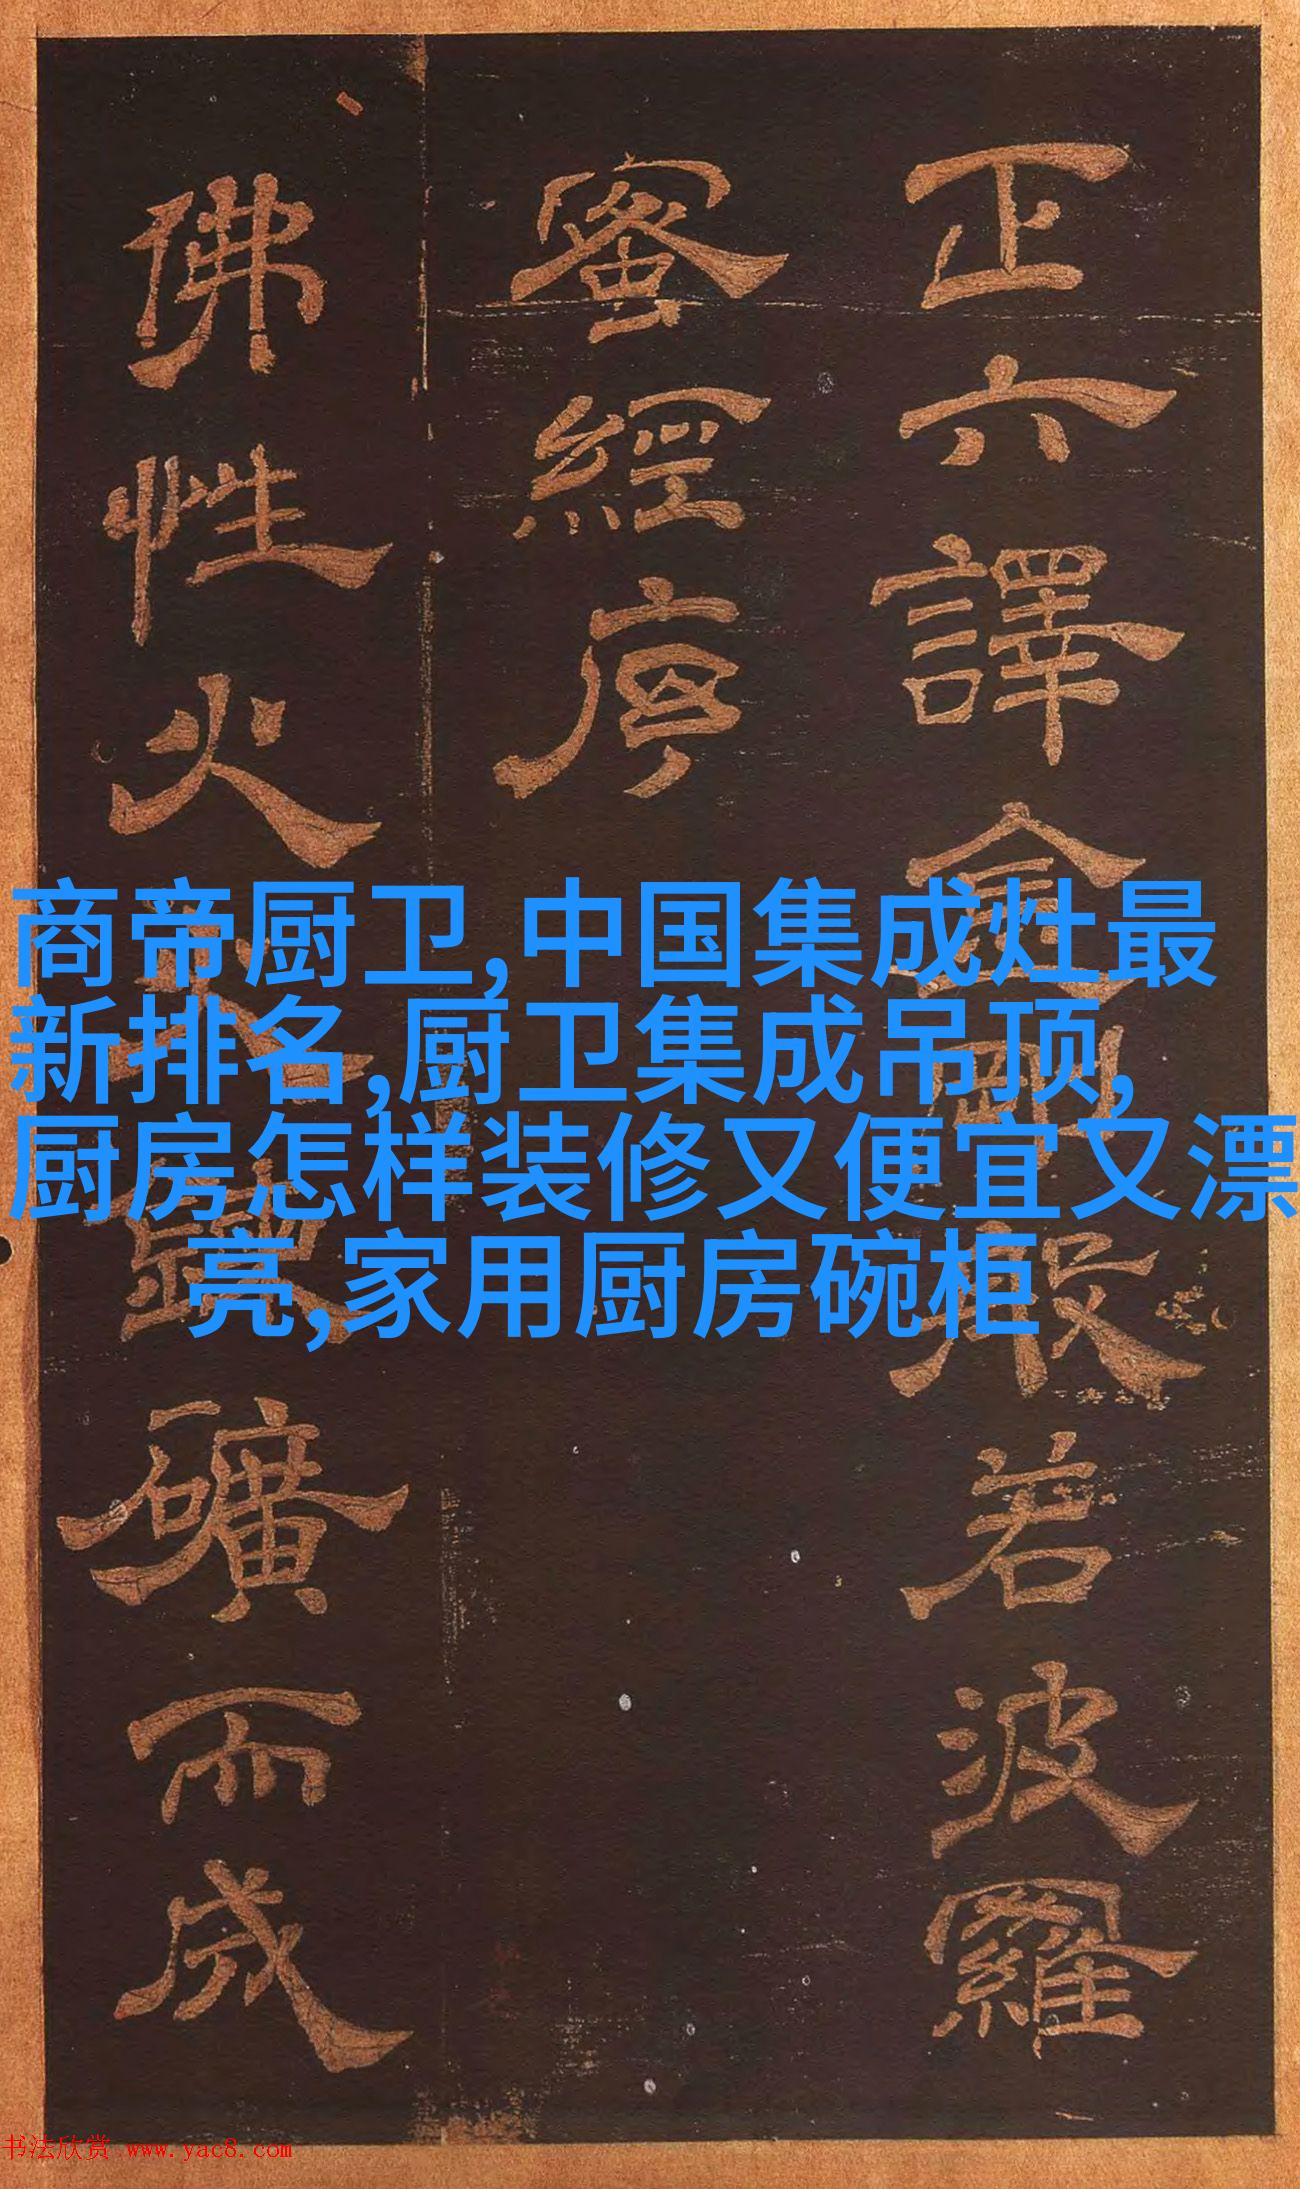 正六譯金剛般若波羅
蜜經序
佛性火礦而成
商帝厨卫,中国集成灶最
新排名,厨卫集成吊顶,
厨房怎样装修又便宜又漂
亮,家用厨房碗柜
书法欣赏 www.yac8.com